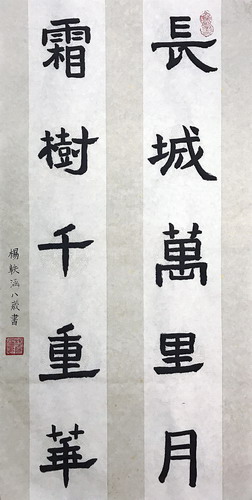 長城萬里月
霜樹千重華
楊軼涵八歲書